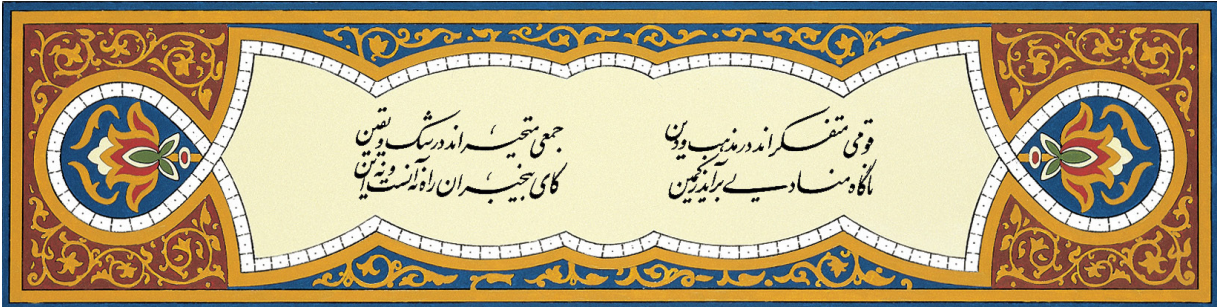 قومی متفکرند در مذهب و دین جمعی متحیرند در شک و یقین
ناگاه منادیی برآید ز کمین کای بیخبران راه نه آنست و نه این